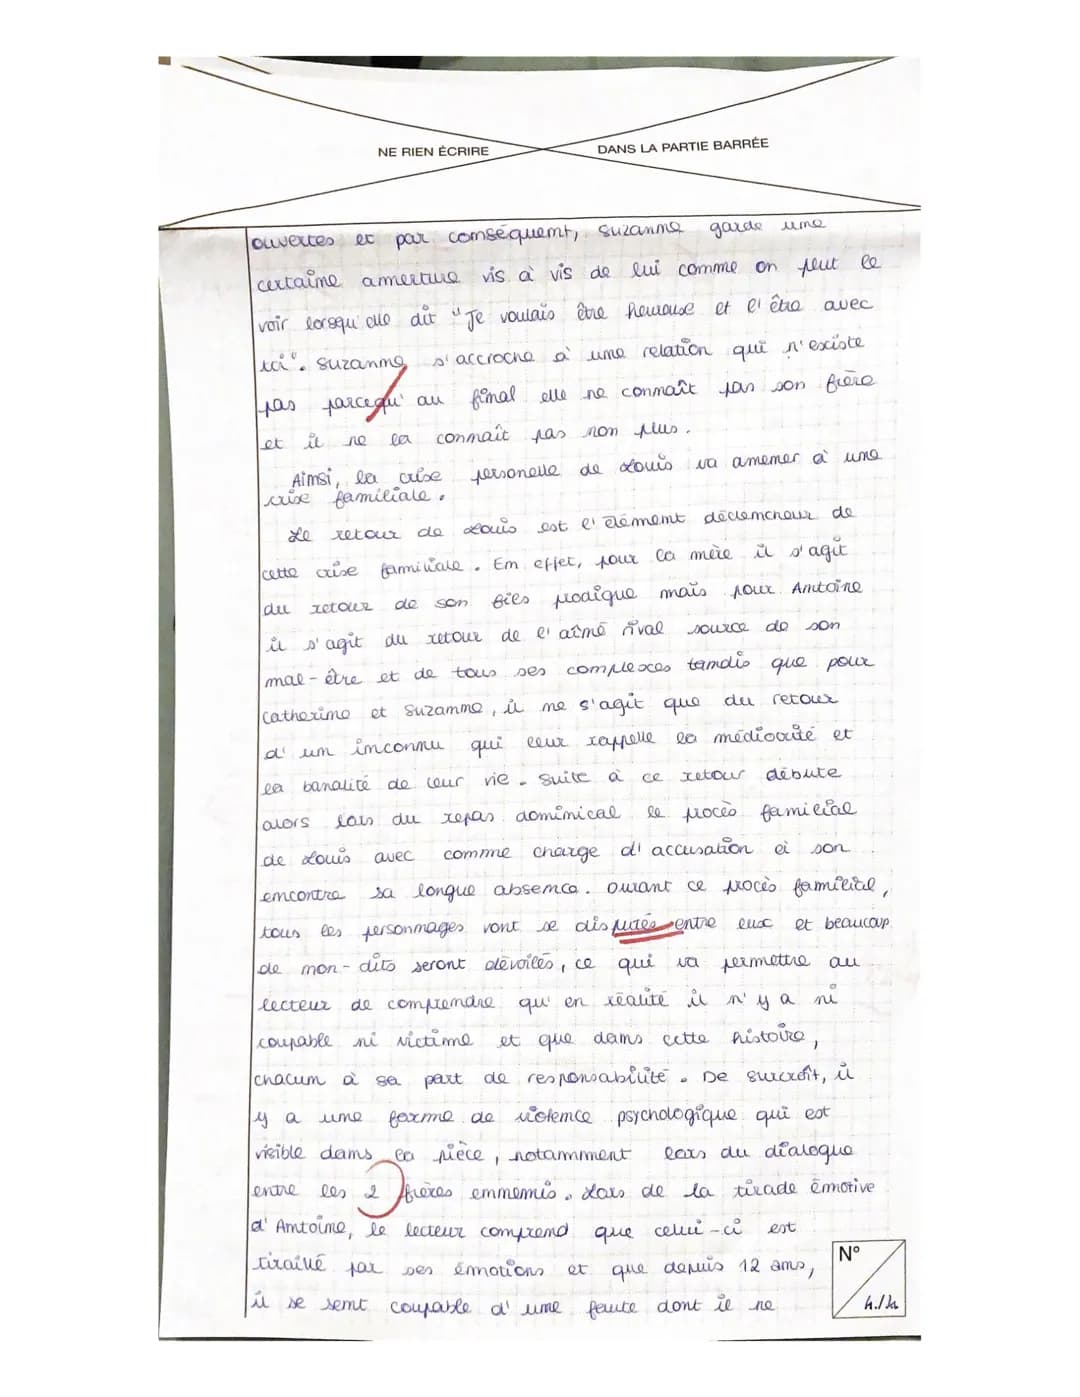 NE RIEN ÉCRIRE DANS LA PARTIE BARRÉE
ouvertes et par conséquent, Suzanne garde une
certaine amertume vis à vis de lui comme on peut le
voir lorsqu'elle dit "Je voulais être heureuse et l'être avec
toi". Suzanne s'accroche à une relation qui n'existe
pas parcequ'au final elle ne connaît pas son frère
et il ne la connaît pas non plus.
Ainsi, la crise personelle de Louis va amener à une
crise familiale.
Le retour de Louis est l'élément déclencheur de
cette crise familiale. En effet, pour la mère il s'agit
du retour de son fils prodigue mais pour Antoine
il s'agit du retour de l'aîné rival source de son
mal-être et de tous ses complexes tandis que pour
Catherine et Suzanne, il ne s'agit que du retour
d'un inconnu qui leur rappelle la médiocrité et
la banalité de leur vie. Suite à ce retour débute
alors lors du repas dominical le procès familial
de Louis avec comme charge d'accusation à son
encontre sa longue absence. Durant ce procès familial,
tous les personnages vont se disputés entre eux et beaucoup
de non-dits seront dévoilés, ce qui va permettre au
lecteur de comprendre qu'en réalité il n'y a ni
coupable ni victime et que dans cette histoire,
chacun à sa part de responsabilité. De surcroît, il
y a une forme de violence psychologique qui est
visible dans la pièce, notamment lors du dialogue
entre les 2 frères ennemis. Lors de la tirade émotive
d'Antoine, le lecteur comprend que celui-ci est
tiraillé par ses émotions et que depuis 12 ans,
il se sent coupable d'une faute dont il ne
N°
4./4